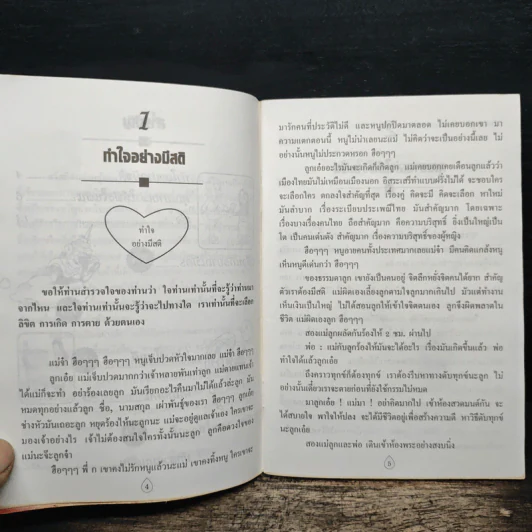 1
ทำใจอย่างมีสติ
ทำใจ
อย่างมีสติ
ขอให้ท่านสำรวจใจของท่านว่า ใจท่านเท่านั้นที่จะรู้ว่าท่านมา
จากไหน และใจท่านเท่านั้นจะรู้ว่าจะไปทางใด เราเท่านั้นที่จะเลือก
ลิขิต การเกิด การตาย ด้วยตนเอง
แม่จ๋า ฮือๆๆๆ ฮือๆๆๆ หนูเจ็บปวดหัวใจมากเลย แม่จ๋า ฮือๆๆๆ
ลูกเอ๋ย แม่เจ็บปวดมากกว่าเจ้าหลายพันเท่าลูก แม่ตายแทนเจ้า
ได้แม่ก็จะทำ อย่าร้องเลยลูก มันเรียกอะไรคืนมาไม่ได้แล้วล่ะลูก มัน
หมดทุกอย่างแล้วลูก ชื่อ, นามสกุล เผ่าพันธุ์ของเรา ฮือๆๆๆ ลูกเอ๋ย
ช่างหัวมันเถอะลูก หยุดร้องไห้นะลูกนะ แม่จะอยู่ดูแลเจ้าเอง ใครเขาจะ
มองเจ้าอย่างไร เจ้าไม่ต้องสนใจใครทั้งนั้นนะลูก ลูกคือดวงใจของ
แม่นะจ๊ะลูกจ๋า
ฮือๆๆๆ พี่ ก เขาคงไม่รักหนูแล้วนะแม่ เขาคงทิ้งหนู ใครเขาจะ
4
มารักคนที่ประวัติไม่ดี และหนูปกปิดมาตลอด ไม่เคยบอกเขา มา
ความแตกตอนนี้ หนูไม่น่าเลยนะแม่ ไม่คิดว่าจะเป็นอย่างนี้เลย ไม่
อย่างนั้นหนูไม่ประกวดหรอก ฮือๆๆๆ
ลูกเอ๋ยอะไรมันจะเกิดก็เกิดลูก แม่เคยบอกเคยเตือนลูกแล้วว่า
เมืองไทยมันไม่เหมือนเมืองนอก อิสระเสรีทำแบบฝรั่งไม่ได้ จะชอบใคร
จะเลือกใคร ตกลงใจสำคัญที่สุด เรื่องคู่ คิดจะมี คิดจะเลือก หาใหม่
มันลำบาก เรื่องระเบียบประเพณีไทย มันสำคัญมาก โดยเฉพาะ
เรื่องบางเรื่องคนไทย ถือสำคัญมาก คือความบริสุทธิ์ ยิ่งเป็นใหญ่เป็น
โต เป็นคนเด่นดัง สำคัญมาก เรื่องความบริสุทธิ์ของผู้หญิง
ฮือๆๆๆ หนูอายคนทั้งประเทศมากเลยแม่จ๋า มีคนคิดแกล้งหนู
เห็นหนูดีเด่นกว่า ฮือๆๆๆ
ของธรรมดาลูก เขายังเป็นคนอยู่ จิตลึกหยั่งจิตคนได้ยาก สำคัญ
ตัวเราต้องมีสติ แม่ผิดเองเลี้ยงลูกตามใจลูกมากเกินไป มัวแต่ทำงาน
เห็นเงินเป็นใหญ่ ไม่ได้สอนลูกให้เข้าใจจิตตนเอง ลูกจึงผิดพลาดใน
ชีวิต แม่ผิดเองลูก ฮือๆๆๆ
สองแม่ลูกผลัดกันร้องไห้ 2 ชม. ผ่านไป
พ่อ : แม่กับลูกร้องไห้มันจะได้อะไร เรื่องมันเกิดขึ้นแล้ว พ่อ
ทำใจได้แล้วลูกเอ๋ย
ถึงคราวทุกข์ก็ต้องทุกข์ เราต้องไปหาทางดับทุกข์นะลูก ไม่
อย่างนั้นเดี๋ยวเราจะตายก่อนที่ยังใช้กรรมไม่หมด
มาลูกเอ๋ย ! แม่มา ! อย่าคิดมากไป เข้าห้องสวดมนต์กัน จะ
ได้สบายใจ พาใจให้ปลง จะได้มีชีวิตอยู่เพื่อสร้างความดี หาวิธีดับทุกข์
นะลูกเอ๋ย
สองแม่ลูกและพ่อ เดินเข้าห้องพระอย่างสงบนิ่ง
5